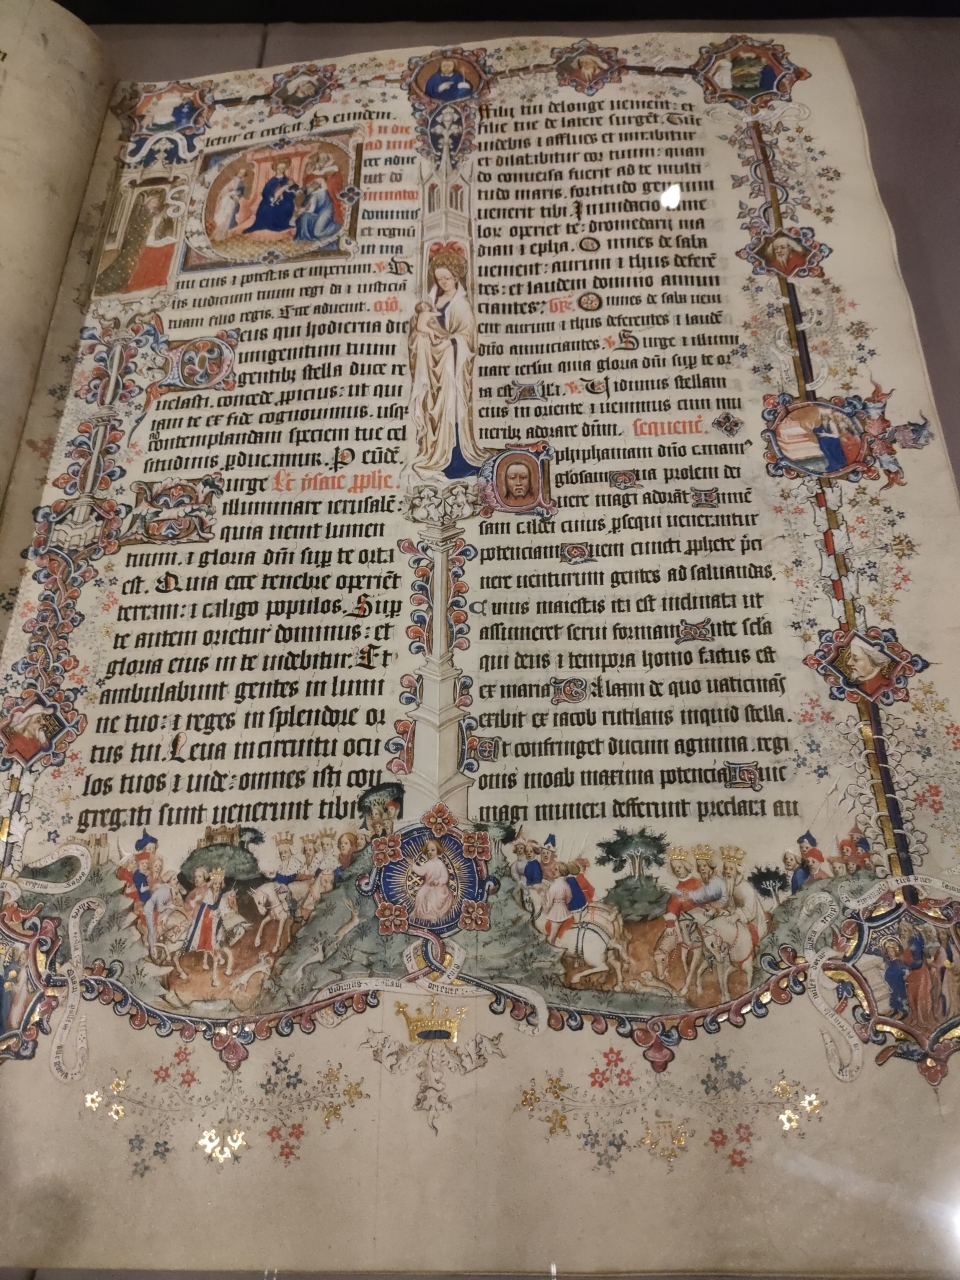 letur et cresc.it. P eiusdem.
In die
ad mis
ce adue
nit do
minator
dominus
et regnū
in ma
nu eius ⁊ potestas et imperium. V. De
us iudicium tuum regi da ⁊ iusticiā
tuam filio regis. Ecce aduenit. Oīo.
Deus qui hodierna die
unigenitum tuum
gentibꝫ stella duce re
uelasti. concede ꝓpicius: ut qui
iam te ex fide cognouimus. usqꝫ
ad contemplandam speciem tue cel
situdinis ꝑducamur. P eūdē.
Surge Lc̄ ysaie ꝓphe.
illuminare ierusalē:
quia uenit lumen
tuum. ⁊ gloria dn̄i suꝑ te orta
est. Quia ecce tenebre operiēt
terram: ⁊ caligo populos. Suꝑ
te autem orietur dominus: et
gloria eius in te uidebitur. Et
ambulabunt gentes in lumi
ne tuo: ⁊ reges in splendore or
tus tui. Leua in circuitu ocu
los tuos ⁊ uide: omnes isti con
gregati sunt uenerunt tibi
ffilij tui de longe uenient: et
filie tue de latere surgēt. Tūc
uidebis ⁊ afflues et mirabitur
et dilatabitur cor tuum: quan
do conuersa fuerit ad te multi
tudo maris. fortitudo gentium
uenerit tibi. Inundacio came
lorū operiet te: dromedarij ma
dian ⁊ epha. Omnes de saba
uenient: aurum ⁊ thus deferē
tes: et laudem domino annun
ciantes. Gre. Omnes de saba ueni
ent aurum ⁊ thus deferentes ⁊ laudē
dn̄o annunciantes. V. Surge ⁊ illumi
nare ierlm̄ quia gloria dn̄i suꝑ te or
ta est. All'a. V. Uidimus stellam
eius in oriente ⁊ uenimus cum mu
neribꝫ adorare dn̄m. Sequenc̄.
Epiphaniam dn̄o canamꝰ
gloriosam Qua prolem dei
uere magi adorāt Inmē
sam caldei cuius ꝑsequi uenerantur
potenciam Quem cuncti ꝓphete p̄ci
nere uenturum gentes ad saluandas.
Cuius maiestas ita est inclinata ut
assumeret serui formam Ante sc̄la
qui deus ⁊ tempora homo factus est
ex maria Balaam de quo uaticinās
exibit ex iacob rutilans inquid stella.
Et confringet ducum agmina regi
onis moab maxima potencia Huic
magi munera defferunt preclara au